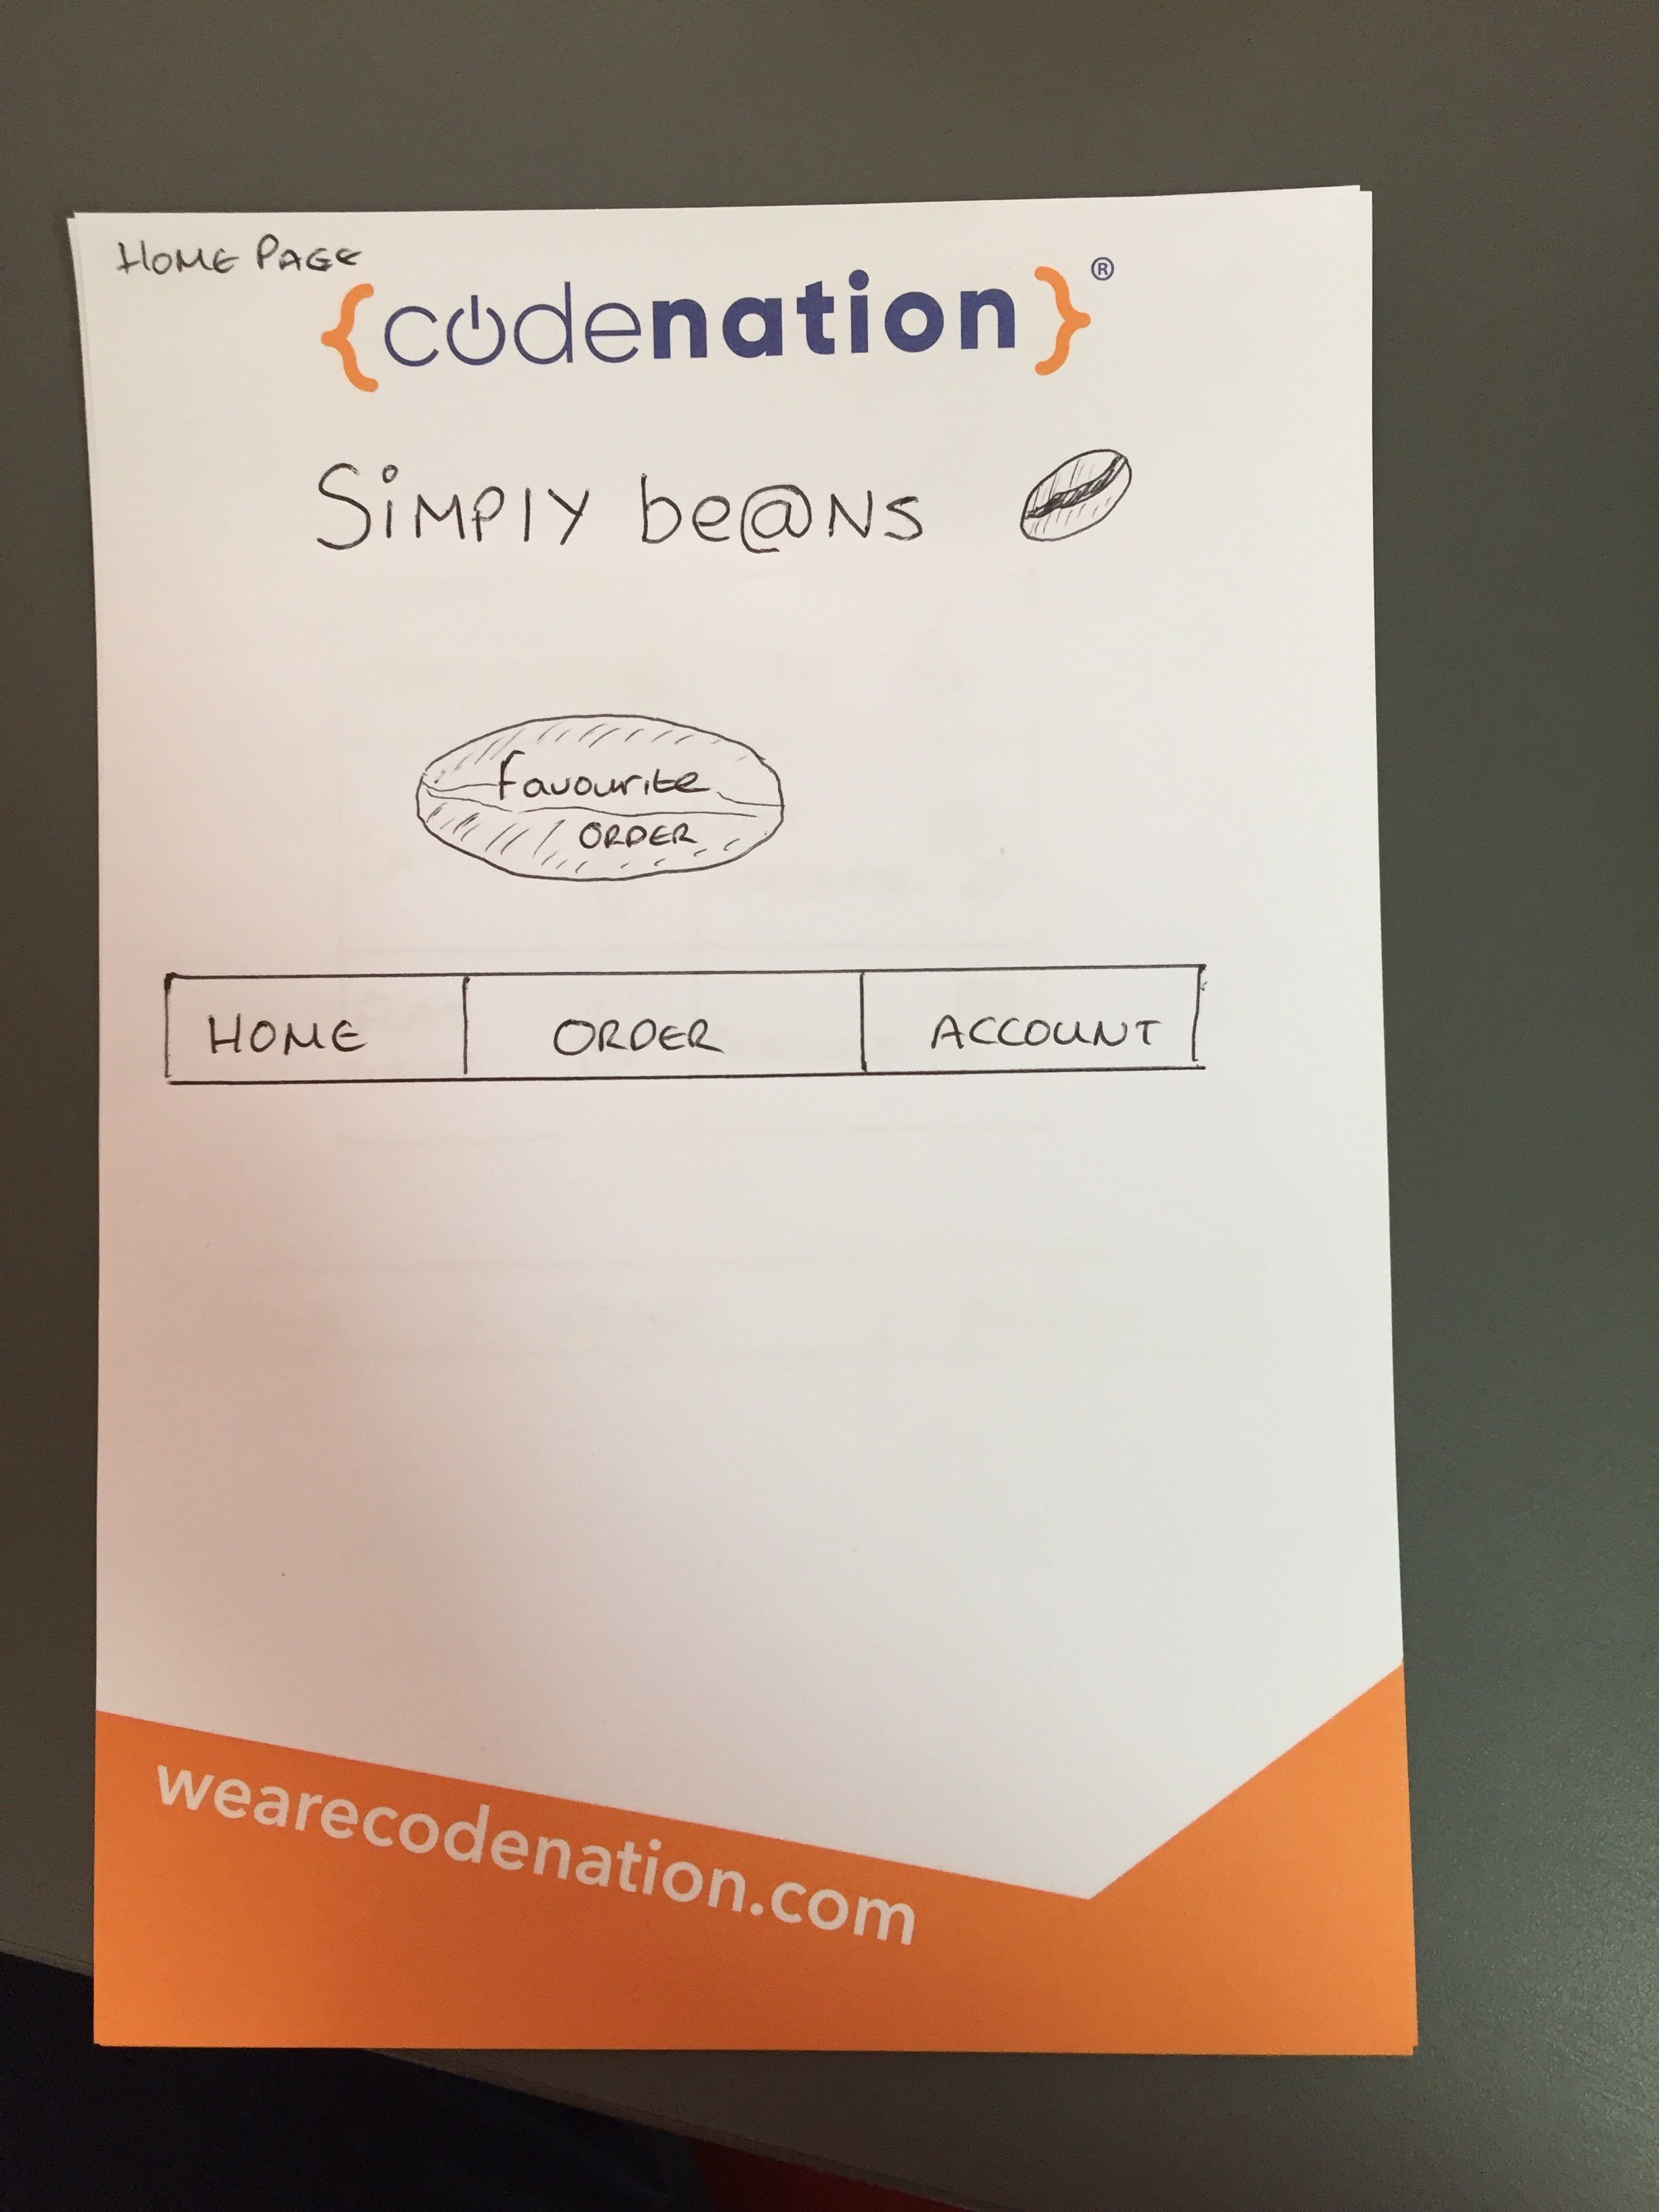 HOME PAGE
{codenation}®
SiMPlY be@NS
favourite
ORDER
HOME ORDER ACCOUNT
wearecodenation.com